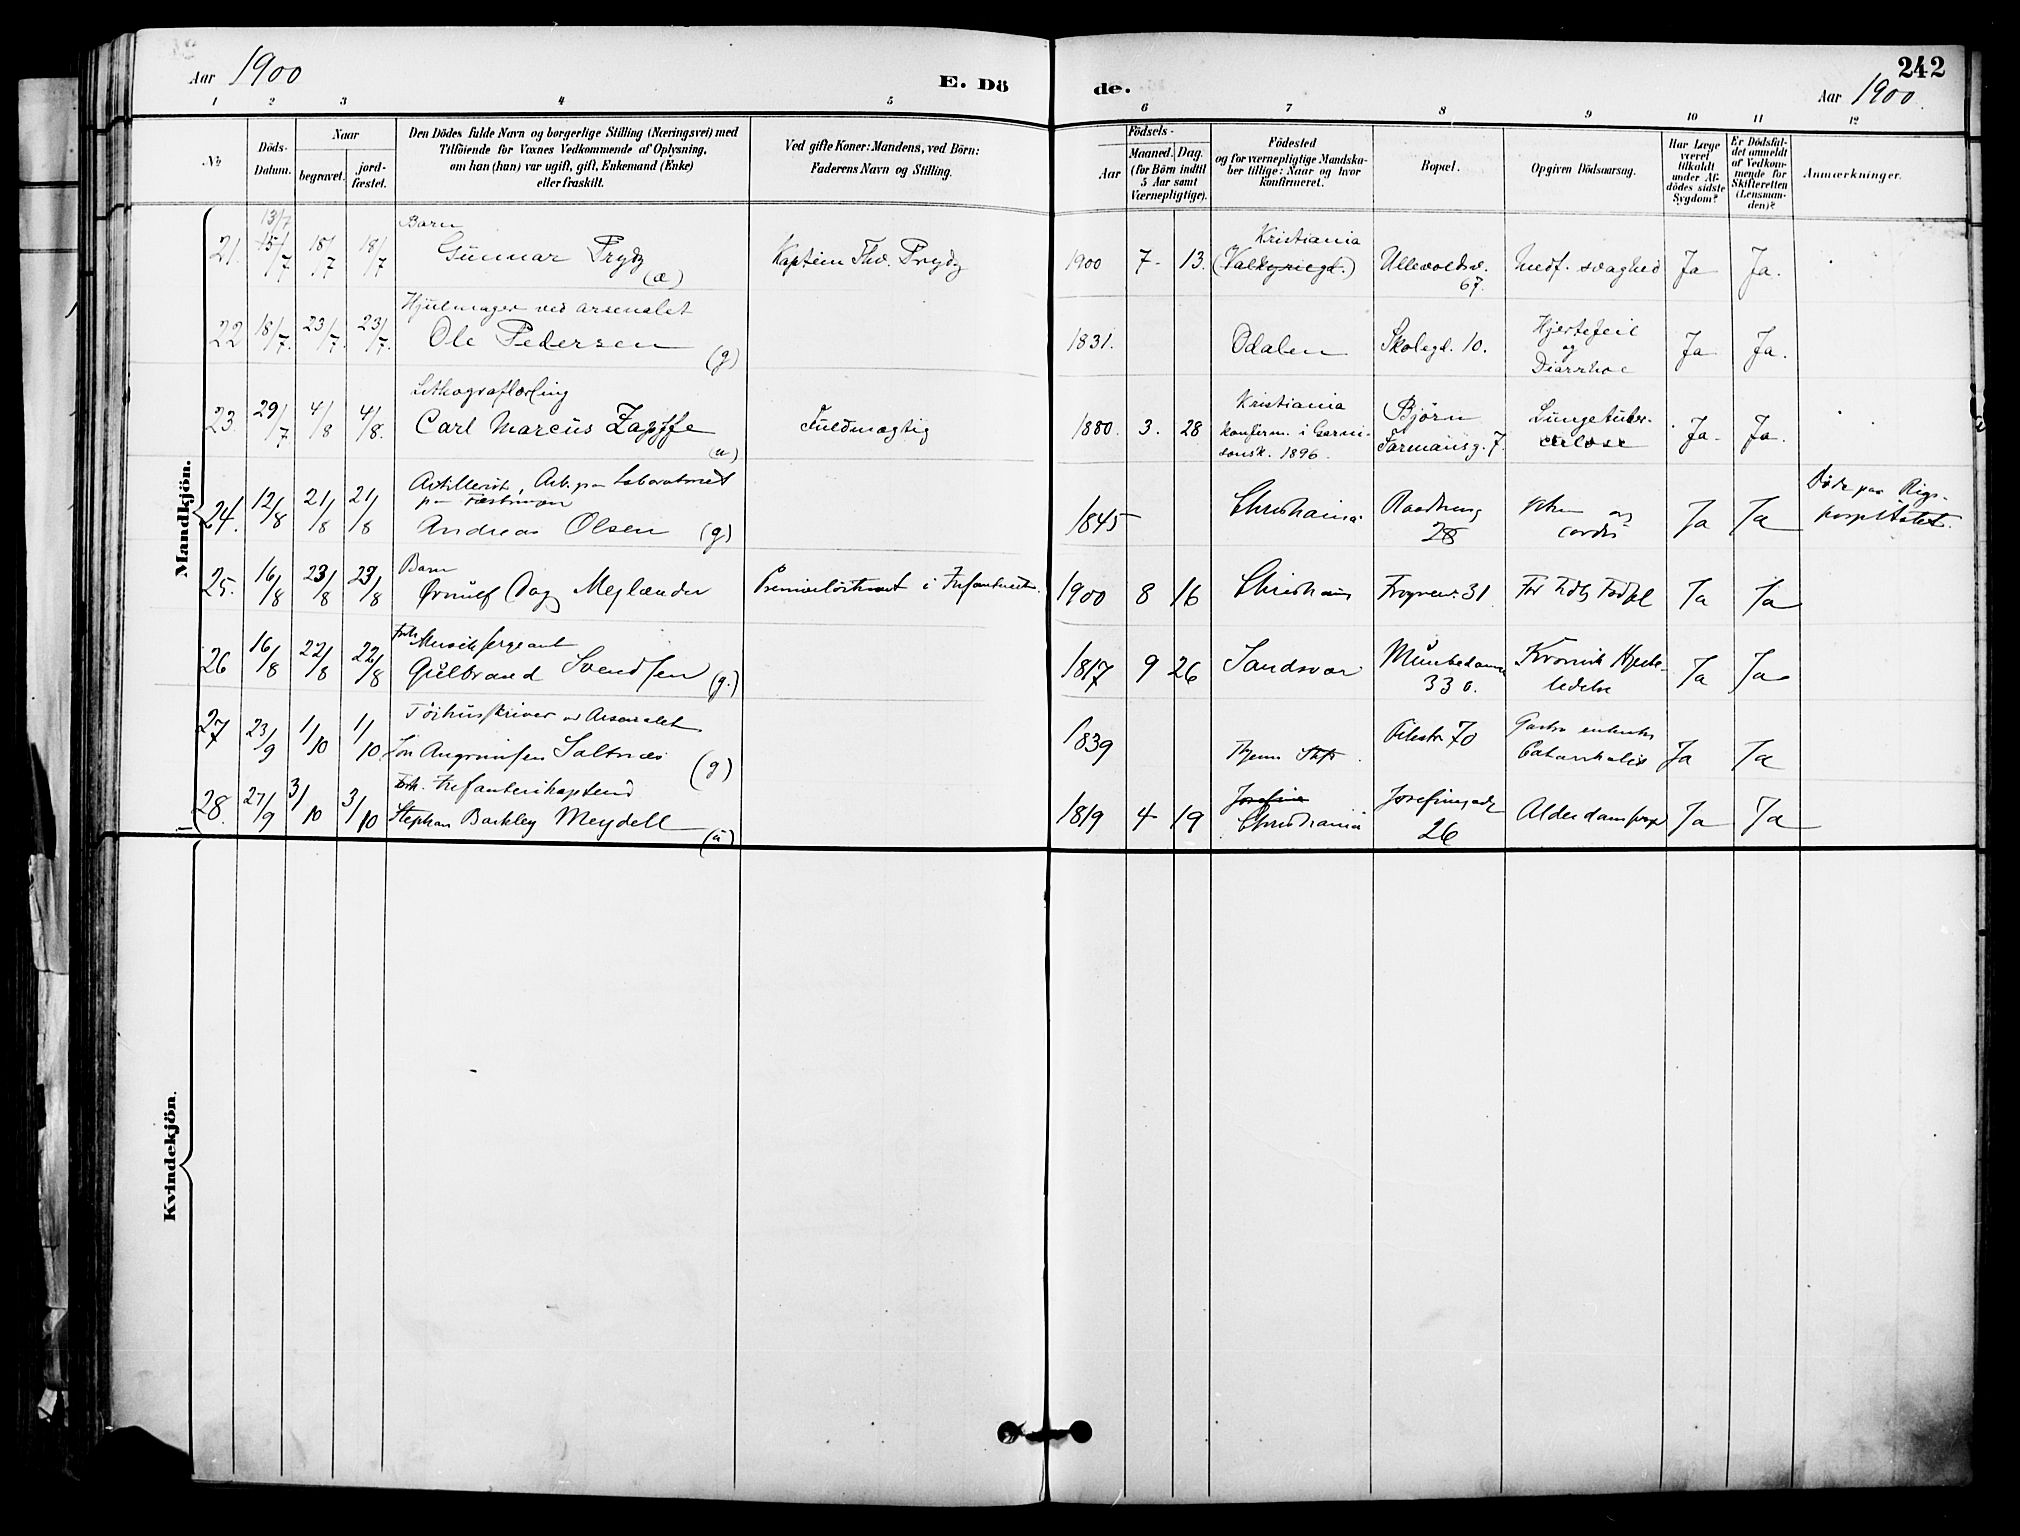 Aar 1900
E. Dö
de.
242
Aar 1900.
1 2 3 4 5 6 7 8 9 10 11 12
No
Döds-
Datum.
Naar
begravet.
jord-
fæstet.
Den Dödes fulde Navn og borgerlige Stilling (Næringsvei) med
Tilföiende for Voxnes Vedkommende af Oplysning,
om han (hun) var ugift, gift, Enkemand (Enke)
eller fraskilt.
Ved gifte Koner: Mandens, ved Börn:
Faderens Navn og Stilling.
Födsels-
Aar
Maaned. Dag.
(for Börn indtil
5 Aar samt
Værnepligtige).
Födested
og for værnepligtige Mandska-
ber tillige: Naar og hvor
konfirmeret.
Bopæl.
Opgiven Dödsaarsag.
Har Læge
været
tilkaldt
under Af-
dödes sidste
Sygdom?
Er Dödsfal-
det anmeldt
af Vedkom-
mende for
Skifteretten
(Lensman-
den)?
Anmærkninger.
Mandkjön.
21. 13/7 15/7 18/7 18/7 Barn
Gunnar Prydz (u)
Kaptein Thv. Prydz
1900 7 13. Kristiania
(Valkyriegd.)
Ullevoldsv.
67.
Medf. svaghed Ja Ja.
22 18/7. 23/7. 23/7. Hjulmager ved arsenalet
Ole Pedersen (g)
1831. Odalen Skolegd. 10. Hjertefeil
og
Diarrhoe
Ja Ja.
23 29/7 4/8 4/8. Lithograflærling
Carl Marcus Zapffe (u)
Fuldmægtig
1880. 3. 28 Kristiania
konfirm. i Garni-
sonsk. 1896.
Bjørn
Farmansg. 7.
Lungetuber-
culose
Ja. Ja.
24. 12/8 21/8 21/8 Artillerist, Arb. paa Laboratoriet
paa Fæstningen
Andreas Olsen (g)
1845 Christiania
28
cordis
Ja Ja
Døde paa Rigs-
hospitalet.
25. 16/8 23/8 23/8 Barn
Ørnulf Dag Mejlænder
Premierløitnant i Infanteriet.
1900 8 16 Christiania Frognerv. 31 Ja Ja
26 16/8 22/8 22/8 Forh. Musiksergeant
Gulbrand Svendsen (g.)
1817 9 26 Sandsvær Munkedamsv
33 c.
Kronisk Hjerte-
lidelse
Ja Ja
27 23/9 1/10 1/10 Tøihusskriver ved Arsenalet
Jon Saltnes (g)
1839 Pilestr 70
Catarrhalis
Ja Ja
28. 27/9 3/10 3/10 Forh. Infanterikaptein
Stephan Barkley Meydell (u)
1819 4 19 Josefine
Christiania
Josefinegade
26
Alderdom Ja Ja
Kvindekjön.